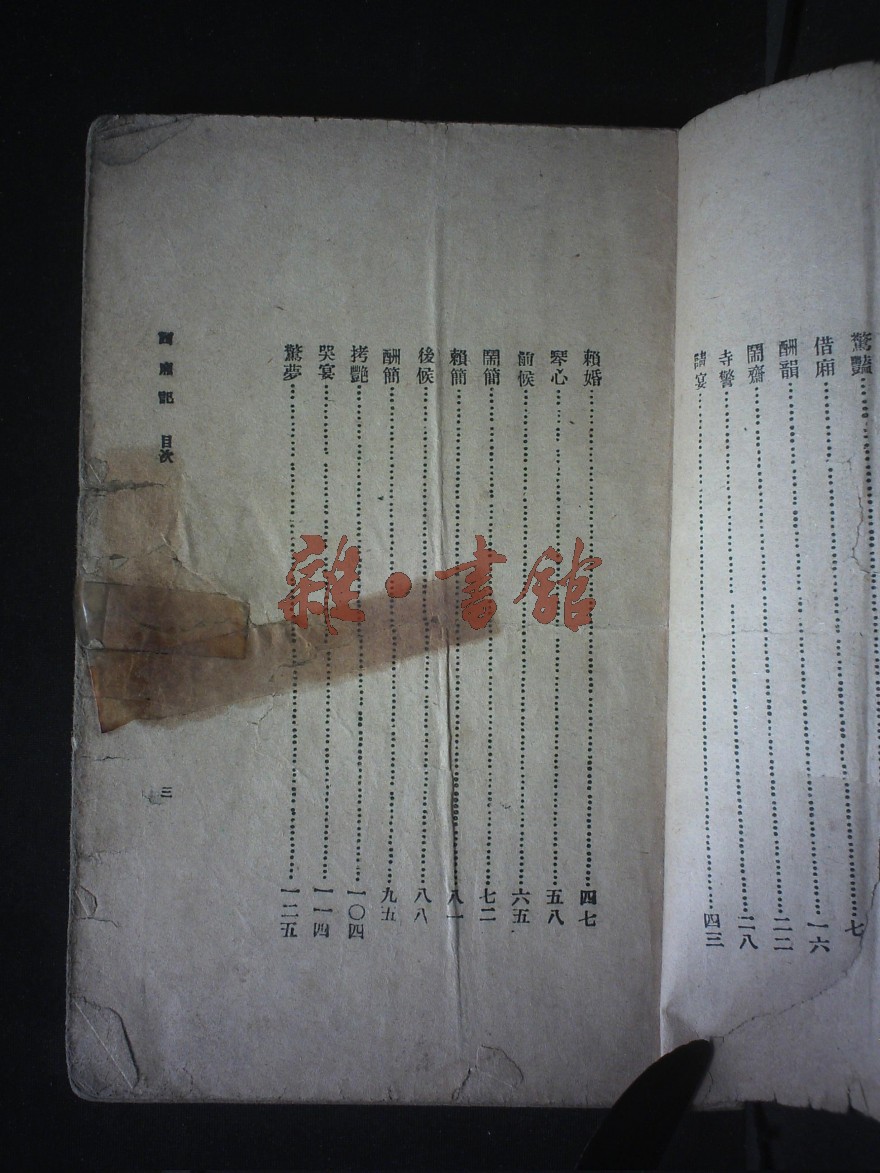 驚豔
借廂……七
酬韻……一六
鬧齋……二二
寺警……二八
請宴……四三
賴婚……四七
琴心……五八
前候……六五
鬧簡……七二
賴簡……八一
後候……八八
酬簡……九五
拷豔……一〇四
哭宴……一一四
驚夢……一二五
西廂記 目次 三
雜·書館